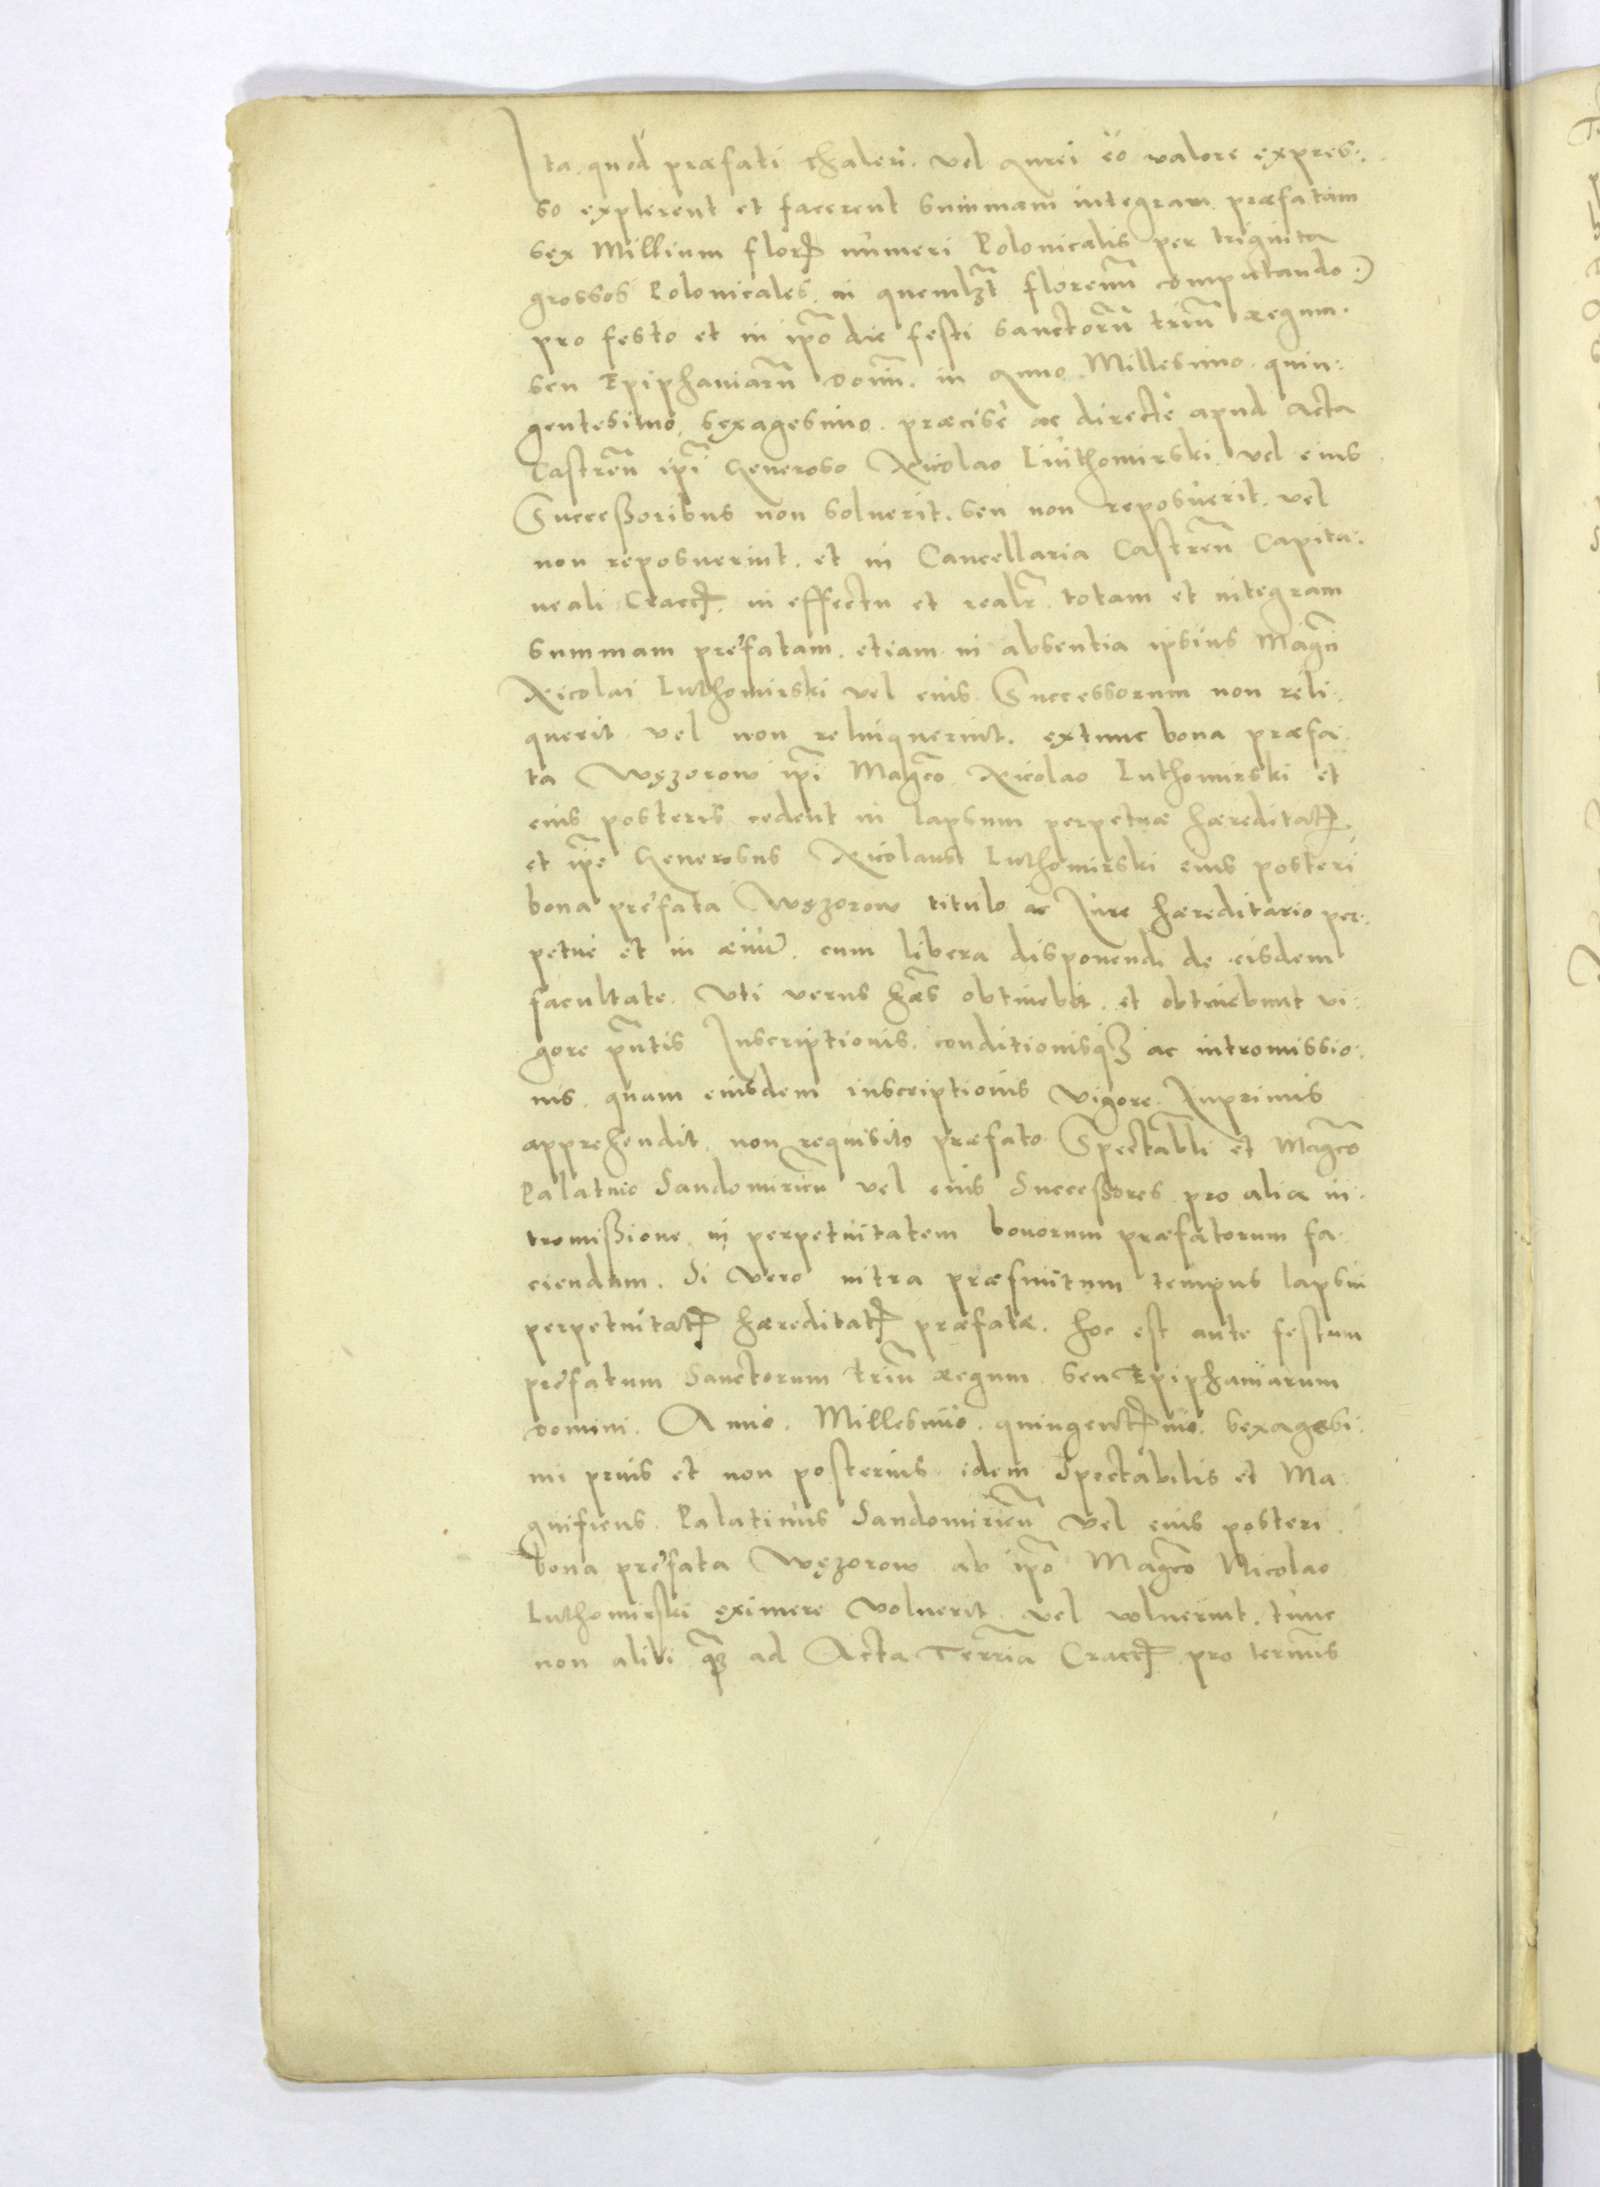 Ita quod præfati thaleri. vel Aurei eo valore expres:
so explerent et facerent summam integram præfatam
sex Millium flor numeri Polonicalis per triginta
grossos Polonicales in quemlzt florenu computando:)
pro festo et in ipo die festi sanctoru triu Regum.
seu Epiphaniaru Domi. in Anno Millesimo quin:
gentesimo. sexagesimo. præcise ac directe apud Acta
Castren ipi Generoso Nicolao Luthomirski vel eius
Successoribus non soluerit. seu non reposuerit. vel
non reposuerint. et in Cancellaria Castren Capita:
neali Crac. in effectu et realr totam et integram
summam prefatam. etiam in absentia ipsius Magci
Nicolai Luthomirski vel eius Successorum non reli:
querit vel non relinquerint. extunc bona præfa
ta Węzorow ipi Magco Nicolao Luthomirski et
eius posteris cedent in lapsum perpetuæ hæreditat
et ipe Generosus Nicolaus Luthomirski eius posteri
bona prefata Węzorow titulo ac Jure hæreditario per:
petue et in æuu. cum libera disponendi de eisdem
facultate. Vti verus hæs obtinebit. et obtinebunt vi:
gore pntis Inscriptionis. conditionisqz ac intromissio:
nis. quam eiusdem inscriptionis vigore Inprimis
apprehendit. non requisito præfato Spectabli et Magco
Palatino Sandomirien vel eius Successores pro alia in:
tromissione in perpetuitatem bonorum præfatorum fa:
ciendam. Si vero intra præfinitum tempus lapsui
perpetuitat hæreditat præfatæ. hoc est ante festum
prefatum Sanctorum triu Regum seu Epiphaniarum
Domini. Anno. Millesimo. quingent mo. sexagesi:
mi prius et non posterius idem Spectabilis et Ma
gnificus. Palatinus Sandomirien vel eius posteri
bona prefata Węzorow ab ipo Magco Nicolao
Luthomirski eximere voluerit vel voluerint. tunc
non alibi qz ad Acta Terria Crac pro termis